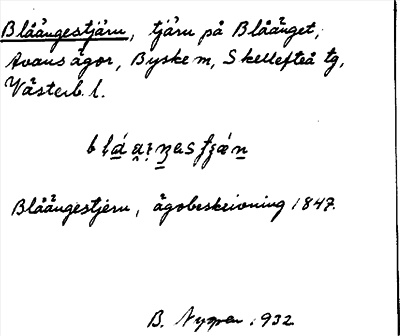 Blåängestjärn, tjärn på Blåänget,
Avans ägor, Byske sn, Skellefteå tg,
Västerb. l.
Blåängestjern, ägobeskrivning 1847.
B. Nyman 1932